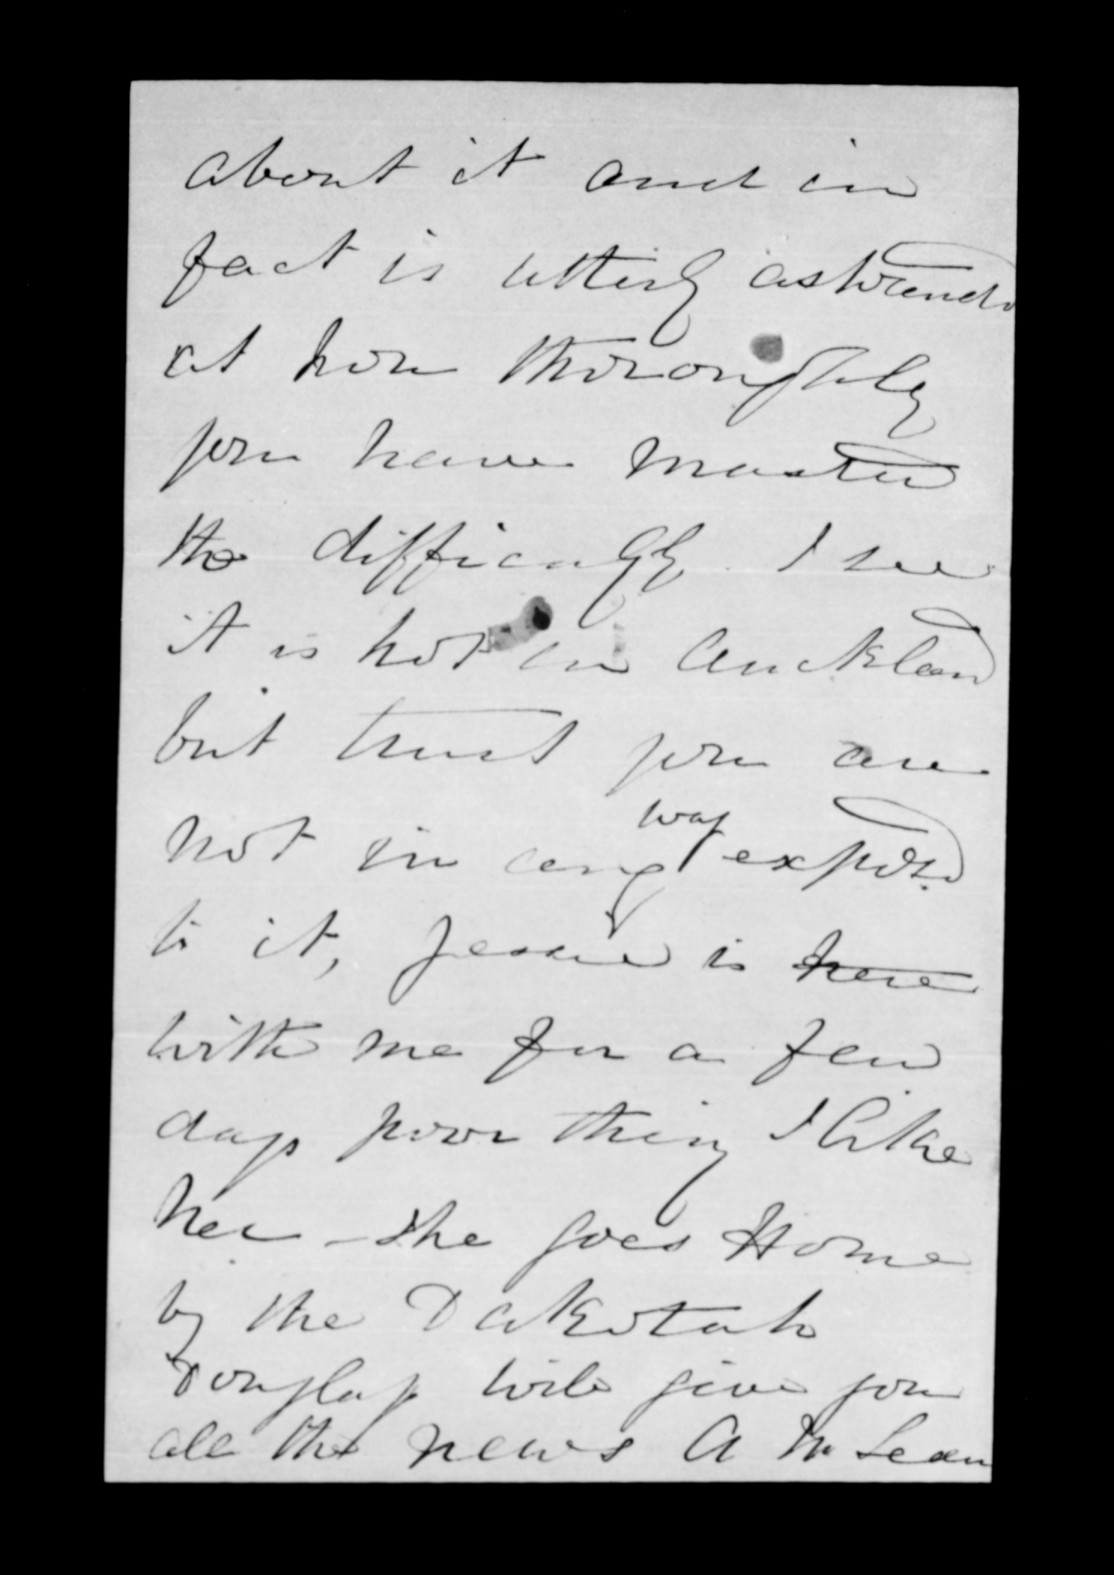 about it and in
fact is utterly astounded
at how thoroughly
you have mastered
the difficulty. I see
it is hot in Auckland
but trust you are
not in any way exposed
to it, Jessie is here
with me for a few
days poor thing I like
her - She goes Home
by the Dakotah
Douglas will give you
all the news A McLean